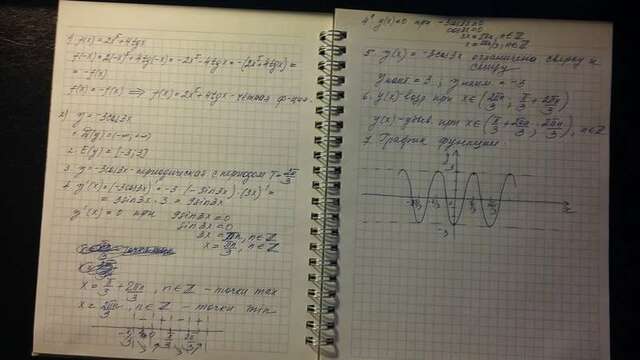 1. f(x) = 2x⁵ + 4tgx
f(-x) = 2(-x)⁵ + 4tg(-x) = -2x⁵ - 4tgx = -(2x⁵ + 4tgx) =
= -f(x)
f(x) = -f(x) ⟹ f(x) = 2x⁵ + 4tgx - чётная ф-ция.
2) y = -3cos3x
1. D(y) = (-∞; +∞)
2. E(y) = [-3; 3]
3. y = -3cos3x - периодическая с периодом T = 2π/3
y'(x) = (-3cos3x)' = -3·(-3sin3x)·(3x)' =
= 3sin3x·3 = 9sin3x
y'(x) = 0 при 9sin3x = 0
sin3x = 0
3x = πn, n∈Z
x = πn/3, n∈Z
x = π/3 + 2πn/3, n∈Z - точки max
x = 2πn/3, n∈Z - точки min
4. y(x) = 0 при -3cos3x = 0
cos3x = 0
5. y(x) = -3cos3x ограничена сверху и
снизу
y наиб = 3; y наим = -3
6. y(x) возр при x∈(2πn/3; π/3 + 2πn/3)
y(x) - убыв. при x∈(π/3 + 2πn/3; 2πn/3), n∈Z
7. График функции:
y
3
x
-3